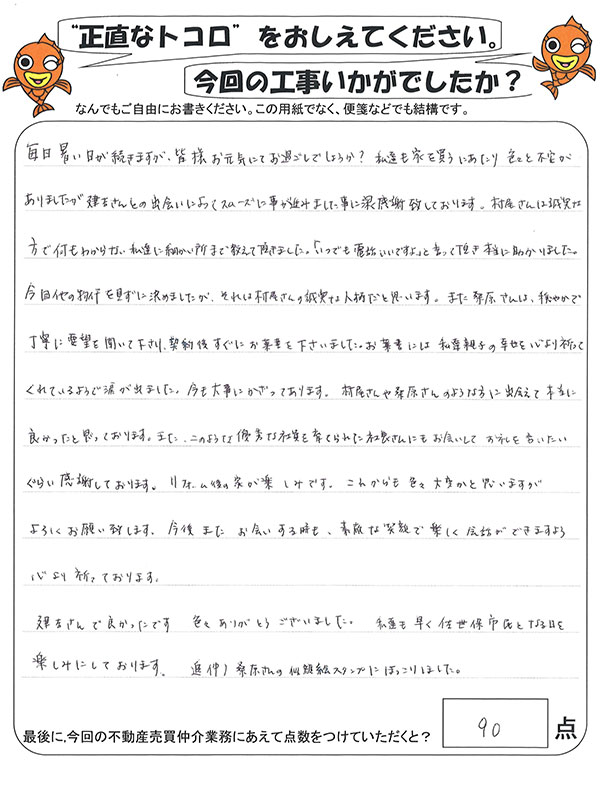 "正直なトコロ"をおしえてください。
今回の工事いかがでしたか？
なんでもご自由にお書きください。この用紙でなく、便箋などでも結構です。
毎日暑い日が続きますが、皆様お元気にてお過ごしでしょうか？私達も家を買うにあたり色々と不安が
ありましたが建吉さんとの出会いによってスムーズに事が進みました事に深く感謝致しております。村居さんは誠実な
方で何もわからない私達に細かい所まで教えて頂きました。「いつでも電話いいですよ」と言って頂き本当に助かりました。
今回他の物件を見ずに決めましたが、それは村居さんの誠実な人柄だと思います。また桑原さんは、穏やかで
丁寧に要望を聞いて下さり、契約後すぐにお葉書を下さいました。お葉書には私達親子の幸せを心より祈って
くれているようで涙が出ました。今も大事にかざってあります。村居さんや桑原さんのような方に出会えて本当に
良かったと思っております。また、このような優秀な社員を育てられた社長さんにもお会いしてお礼を言いたい
ぐらい感謝しております。リフォーム後の家が楽しみです。これからも色々大変かと思いますが
よろしくお願い致します。今後またお会いする時も、素敵な笑顔で楽しく会話ができますよう
心より祈っております。
建吉さんで良かったです 色々ありがとうございました。私達も早く佐世保市民となる日を
楽しみにしております。追伸）桑原さんの似顔絵スタンプにほっこりしました。
最後に、今回の不動産売買仲介業務にあえて点数をつけていただくと？ 90 点